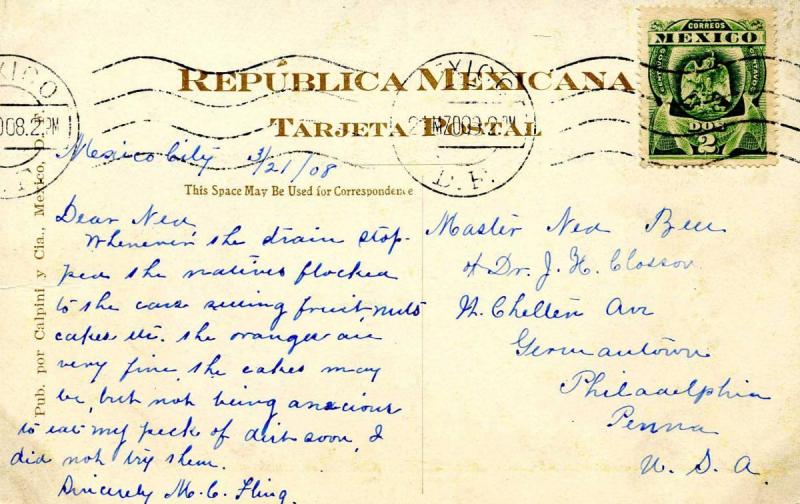 CORREOS
MEXICO
CENTAVOS
CENTAVOS
DOS
2
REPÚBLICA MEXICANA
TARJETA POSTAL
MEXICO
D. F.
21 MZO 08. 2 PM
Mexico City 3/21/08
This Space May Be Used for Correspondence
Pub. por Calpini y Cia., Mexico, D.
Dear Ned,
Whenever the train stop-
ped the natives flocked
to the cars selling fruit nuts
cakes etc. the oranges are
very fine, the cakes may
be, but not being anxious
to eat my peck of dirt soon, I
did not try them.
Sincerely M. C. Fling.
Master Ned
Dr. J. H.
W. Chelten Ave
Germantown
Philadelphia
Penna
U. S. A.